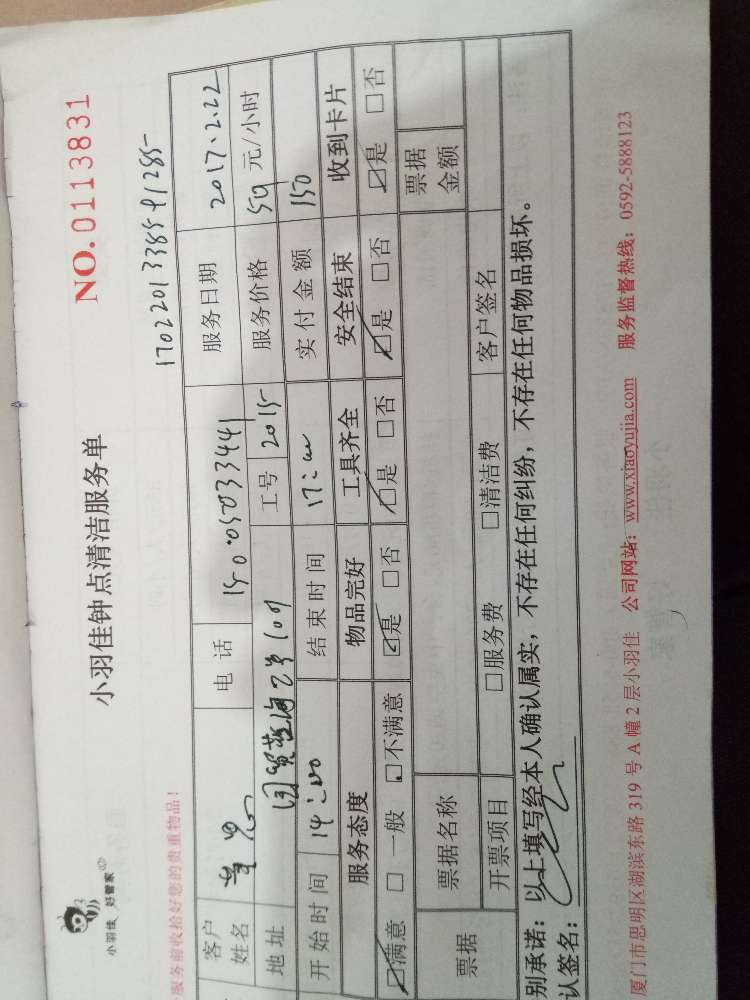 小羽佳 好管家
小羽佳钟点清洁服务单
NO.0113831
服务前收拾好您的贵重物品！
客户姓名
电话 15005033441
服务日期 2017.2.22
地址
工号 2015
服务价格 50 元/小时
开始时间 14:00
结束时间 17:00
实付金额 150
服务态度 物品完好 工具齐全 安全结束 收到卡片
☑满意 □一般 □不满意 ☑是 □否 ☑是 □否 ☑是 □否 ☑是 □否
票据 票据名称 票据金额
开票项目 □服务费 □清洁费 客户签名
别承诺：以上填写经本人确认属实，不存在任何纠纷，不存在任何物品损坏。
认签名：
厦门市思明区湖滨东路 319 号 A 幢 2 层小羽佳 公司网站：www.xiaoyujia.com 服务监督热线：0592-5888123